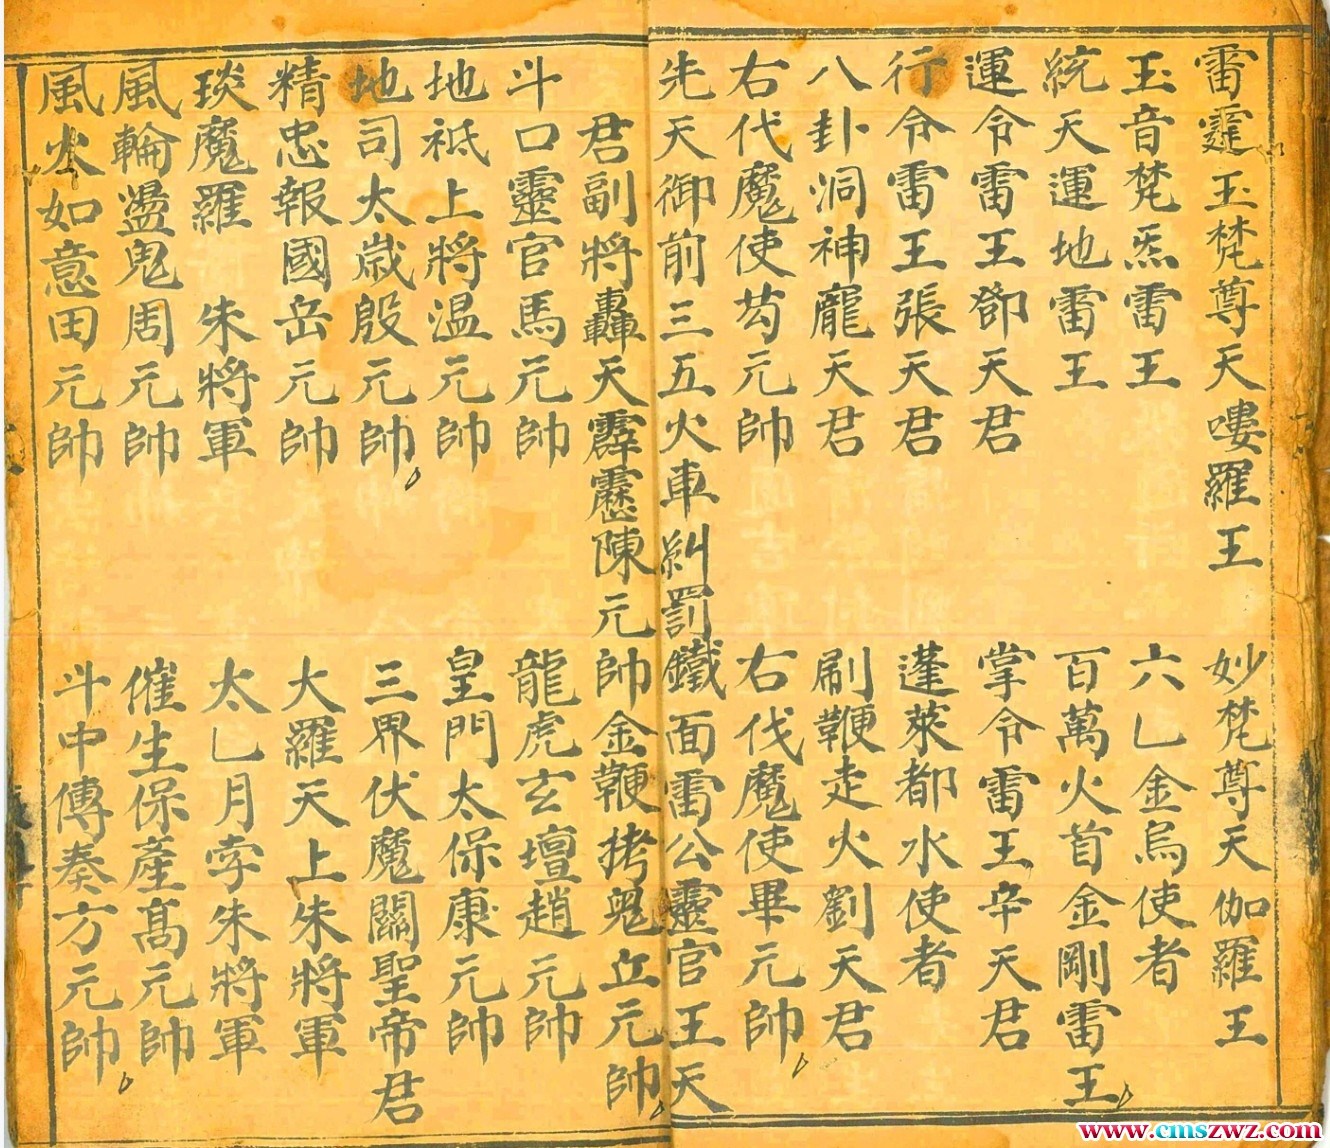 雷霆玉梵尊天嘍羅王　妙梵尊天伽羅王
玉音梵炁雷王　六乚金烏使者
統天運地雷王　百萬火首金剛雷王
運令雷王郤天君　掌令雷王辛天君
行令雷王張天君　蓬萊都水使者
八卦洞神龐天君　刷鞭走火劉天君
右代魔使茍元帥　右伐魔使畢元帥
先天御前三五火車糾罰鐵面雷公靈官王天
君副將轟天霹靂陳元帥金鞭拷鬼丘元帥
斗口靈官馬元帥　龍虎玄壇趙元帥
地祇上將温元帥　皇門太保康元帥
地司太歲殷元帥　三界伏魔關聖帝君
精忠報國岳元帥　大羅天上朱將軍
琰魔羅　朱將軍　太乚月孛朱將軍
風輪盪鬼周元帥　催生保產髙元帥
風火如意田元帥　斗中傳奏方元帥
www.cmszwz.com